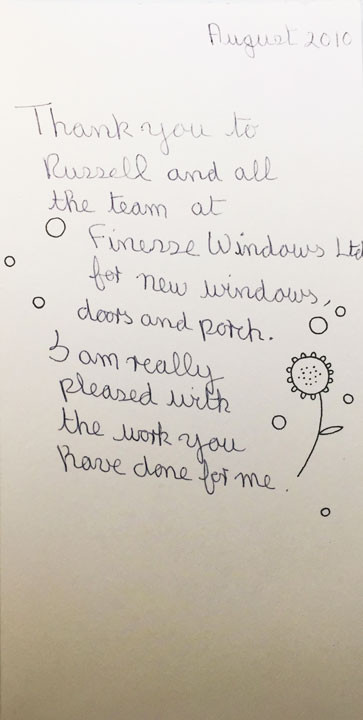 August 2010
Thank you to
Russell and all
the team at
Finesse Windows Ltd
for new windows,
doors and porch.
I am really
pleased with
the work you
have done for me.